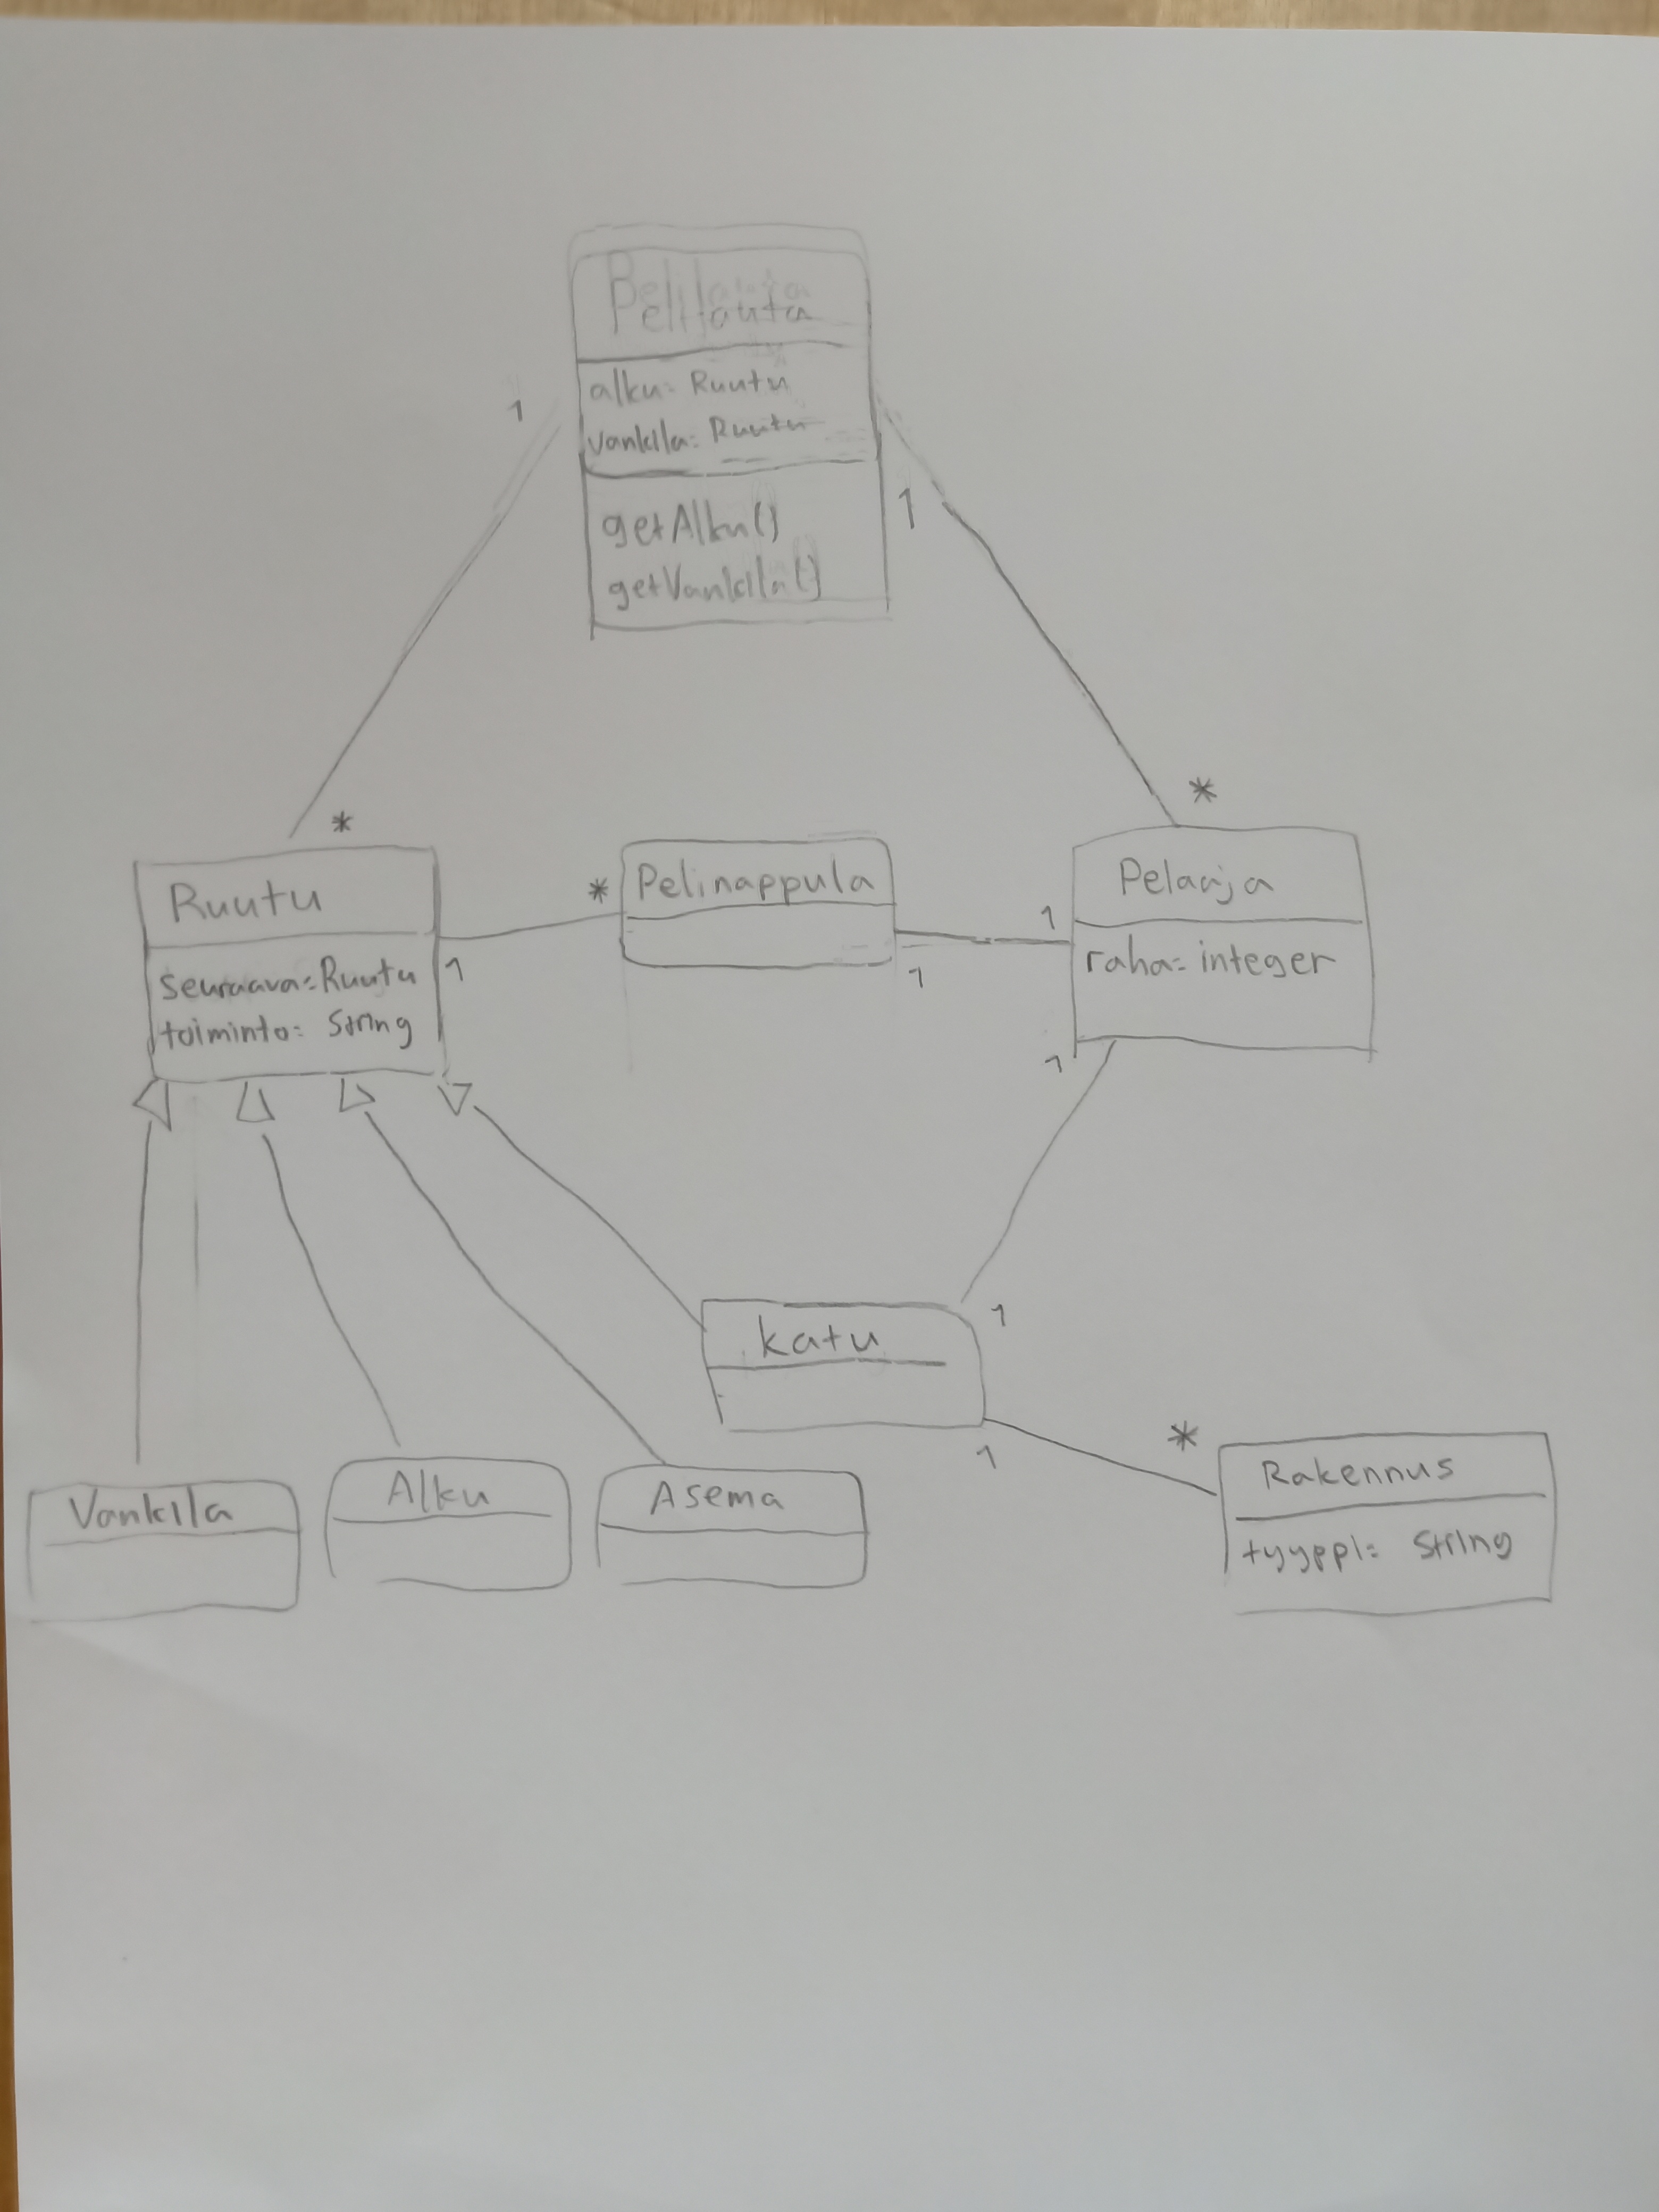 Pelilauta
alku: Ruutu
vankila: Ruutu
getAlku()
getVankila()
1
1
*
*
Ruutu
seuraava: Ruutu
toiminto: String
*
1
Pelinappula
1
1
Pelaaja
raha: integer
1
1
katu
1
*
Rakennus
tyyppi: String
Vankila
Alku
Asema